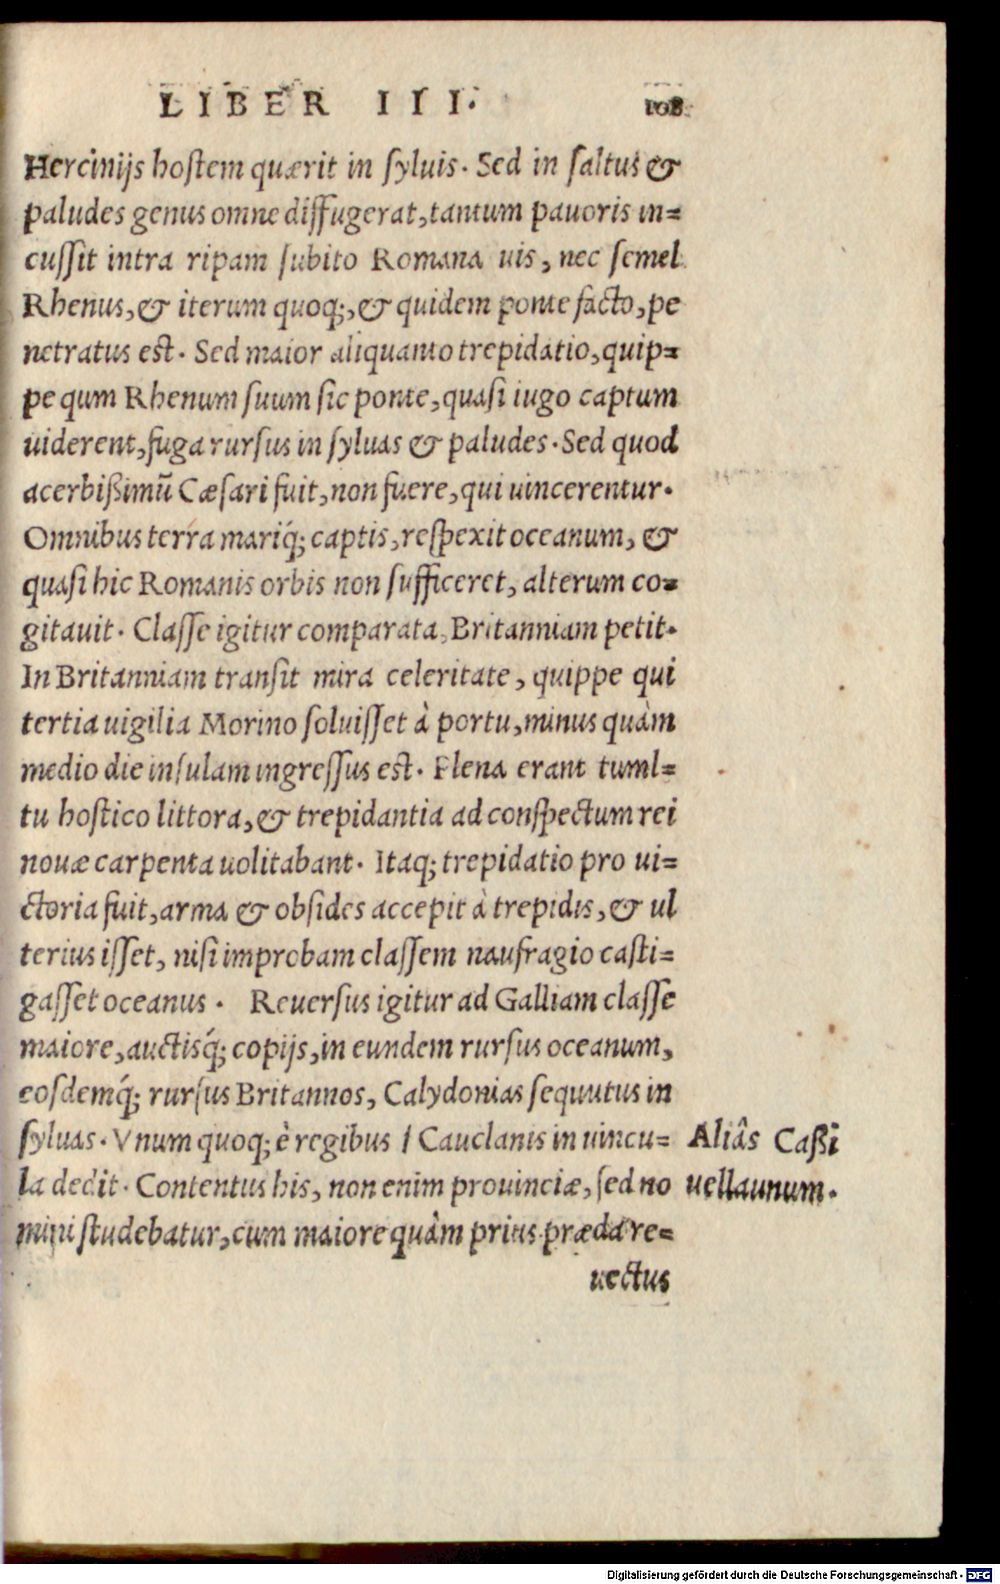 LIBER III. 108
Hercinijs hostem quærit in syluis. Sed in saltus &
paludes genus omne diffugerat, tantum pauoris in=
cussit intra ripam subito Romana uis, nec semel
Rhenus, & iterum quoq;, & quidem ponte facto, pe
netratus est. Sed maior aliquanto trepidatio, quip=
pe qum Rhenum suum sic ponte, quasi iugo captum
uiderent, fuga rursus in syluas & paludes. Sed quod
acerbißimũ Cæsari fuit, non fuere, qui uincerentur.
Omnibus terra mariq́; captis, respexit oceanum, &
quasi hic Romanis orbis non sufficeret, alterum co=
gitauit. Classe igitur comparata, Britanniam petit.
In Britanniam transit mira celeritate, quippe qui
tertia uigilia Morino soluisset à portu, minus quàm
medio die insulam ingressus est. Plena erant tuml=
tu hostico littora, & trepidantia ad conspectum rei
nouæ carpenta uolitabant. Itaq; trepidatio pro ui=
ctoria fuit, arma & obsides accepit à trepidis, & ul
terius isset, nisi improbam classem naufragio casti=
gasset oceanus. Reuersus igitur ad Galliam classe
maiore, auctisq́; copijs, in eundem rursus oceanum,
eosdemq́; rursus Britannos, Calydonias sequutus in
syluas. Vnum quoq; è regibus / Cauclanis in uincu=
la dedit. Contentus his, non enim prouinciæ, sed no
mini studebatur, cum maiore quàm prius præda re=
uectus
Aliâs Caßi
uellaunum.
Digitalisierung gefördert durch die Deutsche Forschungsgemeinschaft - DFG